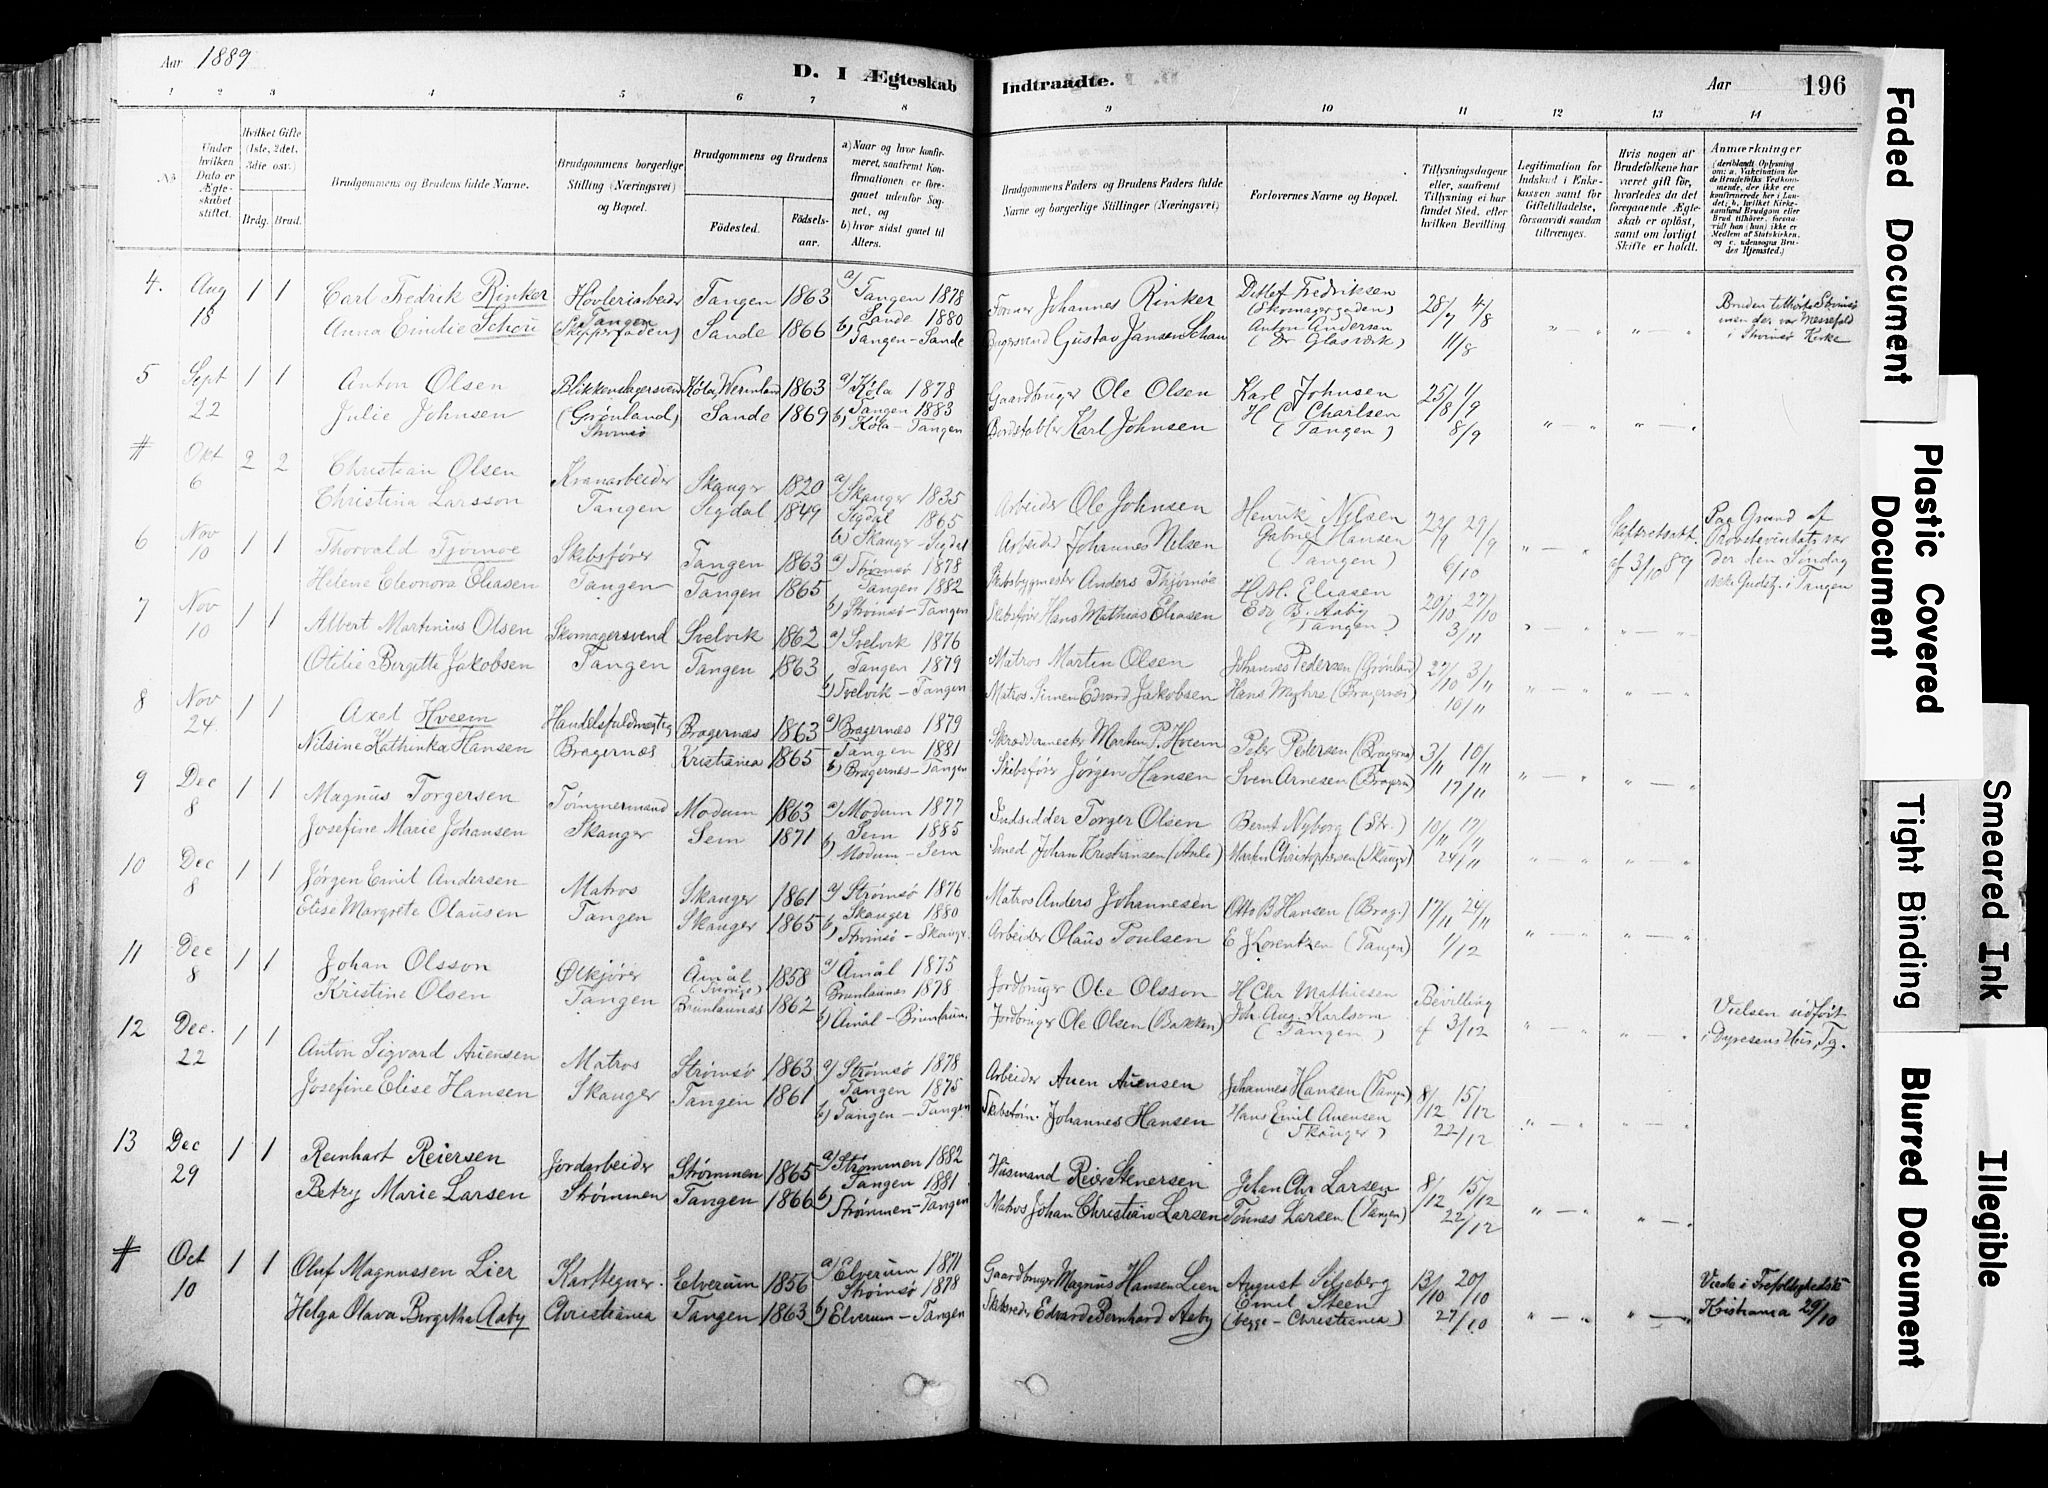 Aar 1889
D. I Ægteskab
Indtraadte.
Aar 196
1 2 3 4 5 6 7 8 9 10 11 12 13 14
No
Under hvilken Dato er Ægteskabet stiftet.
Hvilket Gifte (1ste, 2det, 3die osv.)
Brdg. Brud.
Brudgommens og Brudens fulde Navne.
Brudgommens borgerlige Stilling (Næringsvei) og Bopæl.
Brudgommens og Brudens
Fødested.
Fødselsaar.
a) Naar og hvor konfirmeret, saafremt Konfirmationen er foregaaet udenfor Sognet, og
b) hvor sidst gaaet til Alters.
Brudgommens Faders og Brudens Faders fulde Navne og borgerlige Stillinger (Næringsvei)
Forlovernes Navne og Bopæl.
Tillysningsdagene eller, saafremt Tillysning ei har fundet Sted, efter hvilken Bevilling
Legitimation for Indskud i Enkekassen samt for Giftetilladelse, forsaavidt saadan tiltrænges.
Hvis nogen af Brudefolkene har været gift før, hvorledes da det foregaaende Ægteskab er opløst, samt om lovligt Skifte er holdt.
Anmærkninger
4. Aug 18 1 1
Carl Fredrik Rinker
Anna Emilie Schou
Høvleriarbeider
Tangen
(Skippergaden)
Tangen 1863
Sande 1866
a) Tangen 1878
Sande 1880
b) Tangen - Sande
Former Johannes Rinker
Bagersvend Gustav Jansen Schou
Ditlef Fredriksen
(Skomagergaden)
Anton Andersen
(Dr Glasværk)
28/7 4/8
11/8
" — " " — "
Bruden tilhører Strømsø
men der var Messefald
i Strømsø Kirke
5 Sept 22 1 1
Anton Olsen
Julie Johnsen
Blikkenslagersvend
(Grønland)
Strømsø
Køla Wermland 1863
Sande 1869
a) Køla 1878
Tangen 1883
b) Køla - Tangen
Gaardbruger Ole Olsen
Bordstabler Karl Johnsen
Karl Johnsen
H C Charlsen
(Tangen)
25/8 1/9
8/9
" — " " — "
# Okt 6 2 2
Christian Olsen
Christina Larsson
Kranarbeider
Tangen
Skauger 1820
Sigdal 1849
a) Skauger 1835
Sigdal 1865
b) Skauger - Sigdal
Arbeider Ole Johnsen
Arbeider Johannes Nilsen
Henrik Nilsen
Gabriel Hansen
(Tangen)
22/9 29/9
6/10
" — "
Skifteretsatt.
af 3/10 89
Paa Grund af
Provstevisitats var
der den Søndag
ikke Gudstj. i Tangen
6 Nov 10 1 1
Thorvald Tjømoe
Helene Eleonora Eliasen
Skibsfører
Tangen
Tangen 1863
Tangen 1865
a) Strømsø 1878
Tangen 1882
b) Strømsø - Tangen
Skibsbygmester Anders Thjømøe
Skibsfører Hans Mathias Eliasen
H M. Eliasen
Edv B. Aaby
(Tangen)
20/10 27/10
3/11
" — " " — "
7 Nov 10 1 1
Albert Martinius Olsen
Otilie Birgitte Jakobsen
Skomagersvend
Tangen
Svelvik 1862
Tangen 1863
a) Svelvik 1876
Tangen 1879
b) Svelvik - Tangen
Matros Martin Olsen
Matros Simen Edvard Jakobsen
Johannes Pedersen (Grønland)
Hans Myhre (Bragernæs)
27/10 3/11
10/11
" — " " — "
8 Nov 24. 1 1
Axel Hveem
Nilsine Kathinka Hansen
Handelsfuldmægtig
Bragernæs
Bragernæs 1863
Kristiania 1865
a) Bragernæs 1879
Tangen 1881
b) Bragernæs - Tangen
Skræddermester Martin P. Hveem
Skibsfører Jørgen Hansen
Peter Pedersen (Bragernæs)
Sven Arnesen (Bragern)
3/11 10/11
17/11
" — " " — "
9 Dec 8 1 1
Magnus Torgersen
Josefine Marie Johansen
Tømmermand
Skauger
Modum 1863
Sem 1871
a) Modum 1877
Sem 1885
b) Modum - Sem
Indsidder Torger Olsen
Smed Johan Kristiansen
Bernt Nyborg (Str.)
Martin Christophersen (Skauger)
10/11 17/11
24/11
" — " " — "
10 Dec 8 1 1
Jørgen Emil Andersen
Elise Margrete Olausen
Matros
Tangen
Skauger 1861
Skauger 1865
a) Strømsø 1876
Skauger 1880
b) Strømsø - Skaugr.
Matros Anders Johannesen
Arbeider Olaus Poulsen
Otto B Hansen (Brag.)
E J Lorentzen (Tangen)
17/11 24/11
1/12
" — " " — "
11 Dec 8 1 1
Johan Olsson
Kristine Olsen
Ølkjører
Tangen
Åmål 1858
(Sverige)
Brunlaunæs 1862
a) Åmål 1875
Brunlaunæs 1878
b) Åmål - Brunlaun.
Jordbruger Ole Olsson
Jordbruger Ole Olsen (Bakken)
H Chr Mathiesen
Joh. Aug. Karlsom
(Tangen)
Bevilling
af 3/12
" — " " — "
Vielsen udført
i Dyresens Hus, Tg.
12 Dec. 22 1 1
Anton Sigvard Auensen
Josefine Elise Hansen
Matros
Skauger
Strømsø 1863
Tangen 1861
a) Strømsø 1878
Tangen 1875
b) Tangen - Tangen
Arbeider Auen Auensen
Skibstøm. Johannes Hansen
Johannes Hansen (Tangen)
Hans Emil Auensen
(Skauger)
8/12 15/12
22/12
" — " " — "
13 Dec 29 1 1
Reinhart Reiersen
Betzy Marie Larsen
Jordarbeider
Strømmen
Strømmen 1865
Tangen 1866
a) Strømmen 1882
Tangen 1881
b) Strømmen - Tangen
Husmand Reier Stenersen
Matros Johan Christian Larsen
Johan Chr Larsen
Tønnes Larsen (Tangen)
8/12 15/12
22/12
" — " " — "
# Oct 10 1 1
Oluf Magnussen Lier
Helga Olava Bergitha Aaby
Karttegner.
Christiania
Elverum 1856
Tangen 1863
a) Elverum 1871
Strømsø 1878
b) Elverum - Tangen
Gaardbruger Magnus Hansen Lien
Skibsreder Edvard Bernhard Aaby
August Silseberg
Emil Steen
(begge - Christiania)
13/10 20/10
27/10
" — " " — "
Viede i Trefoldighedsk.
Kristiania 29/10
Faded Document
Plastic Covered Document
Tight Binding
Smeared Ink
Blurred Document
Illegible